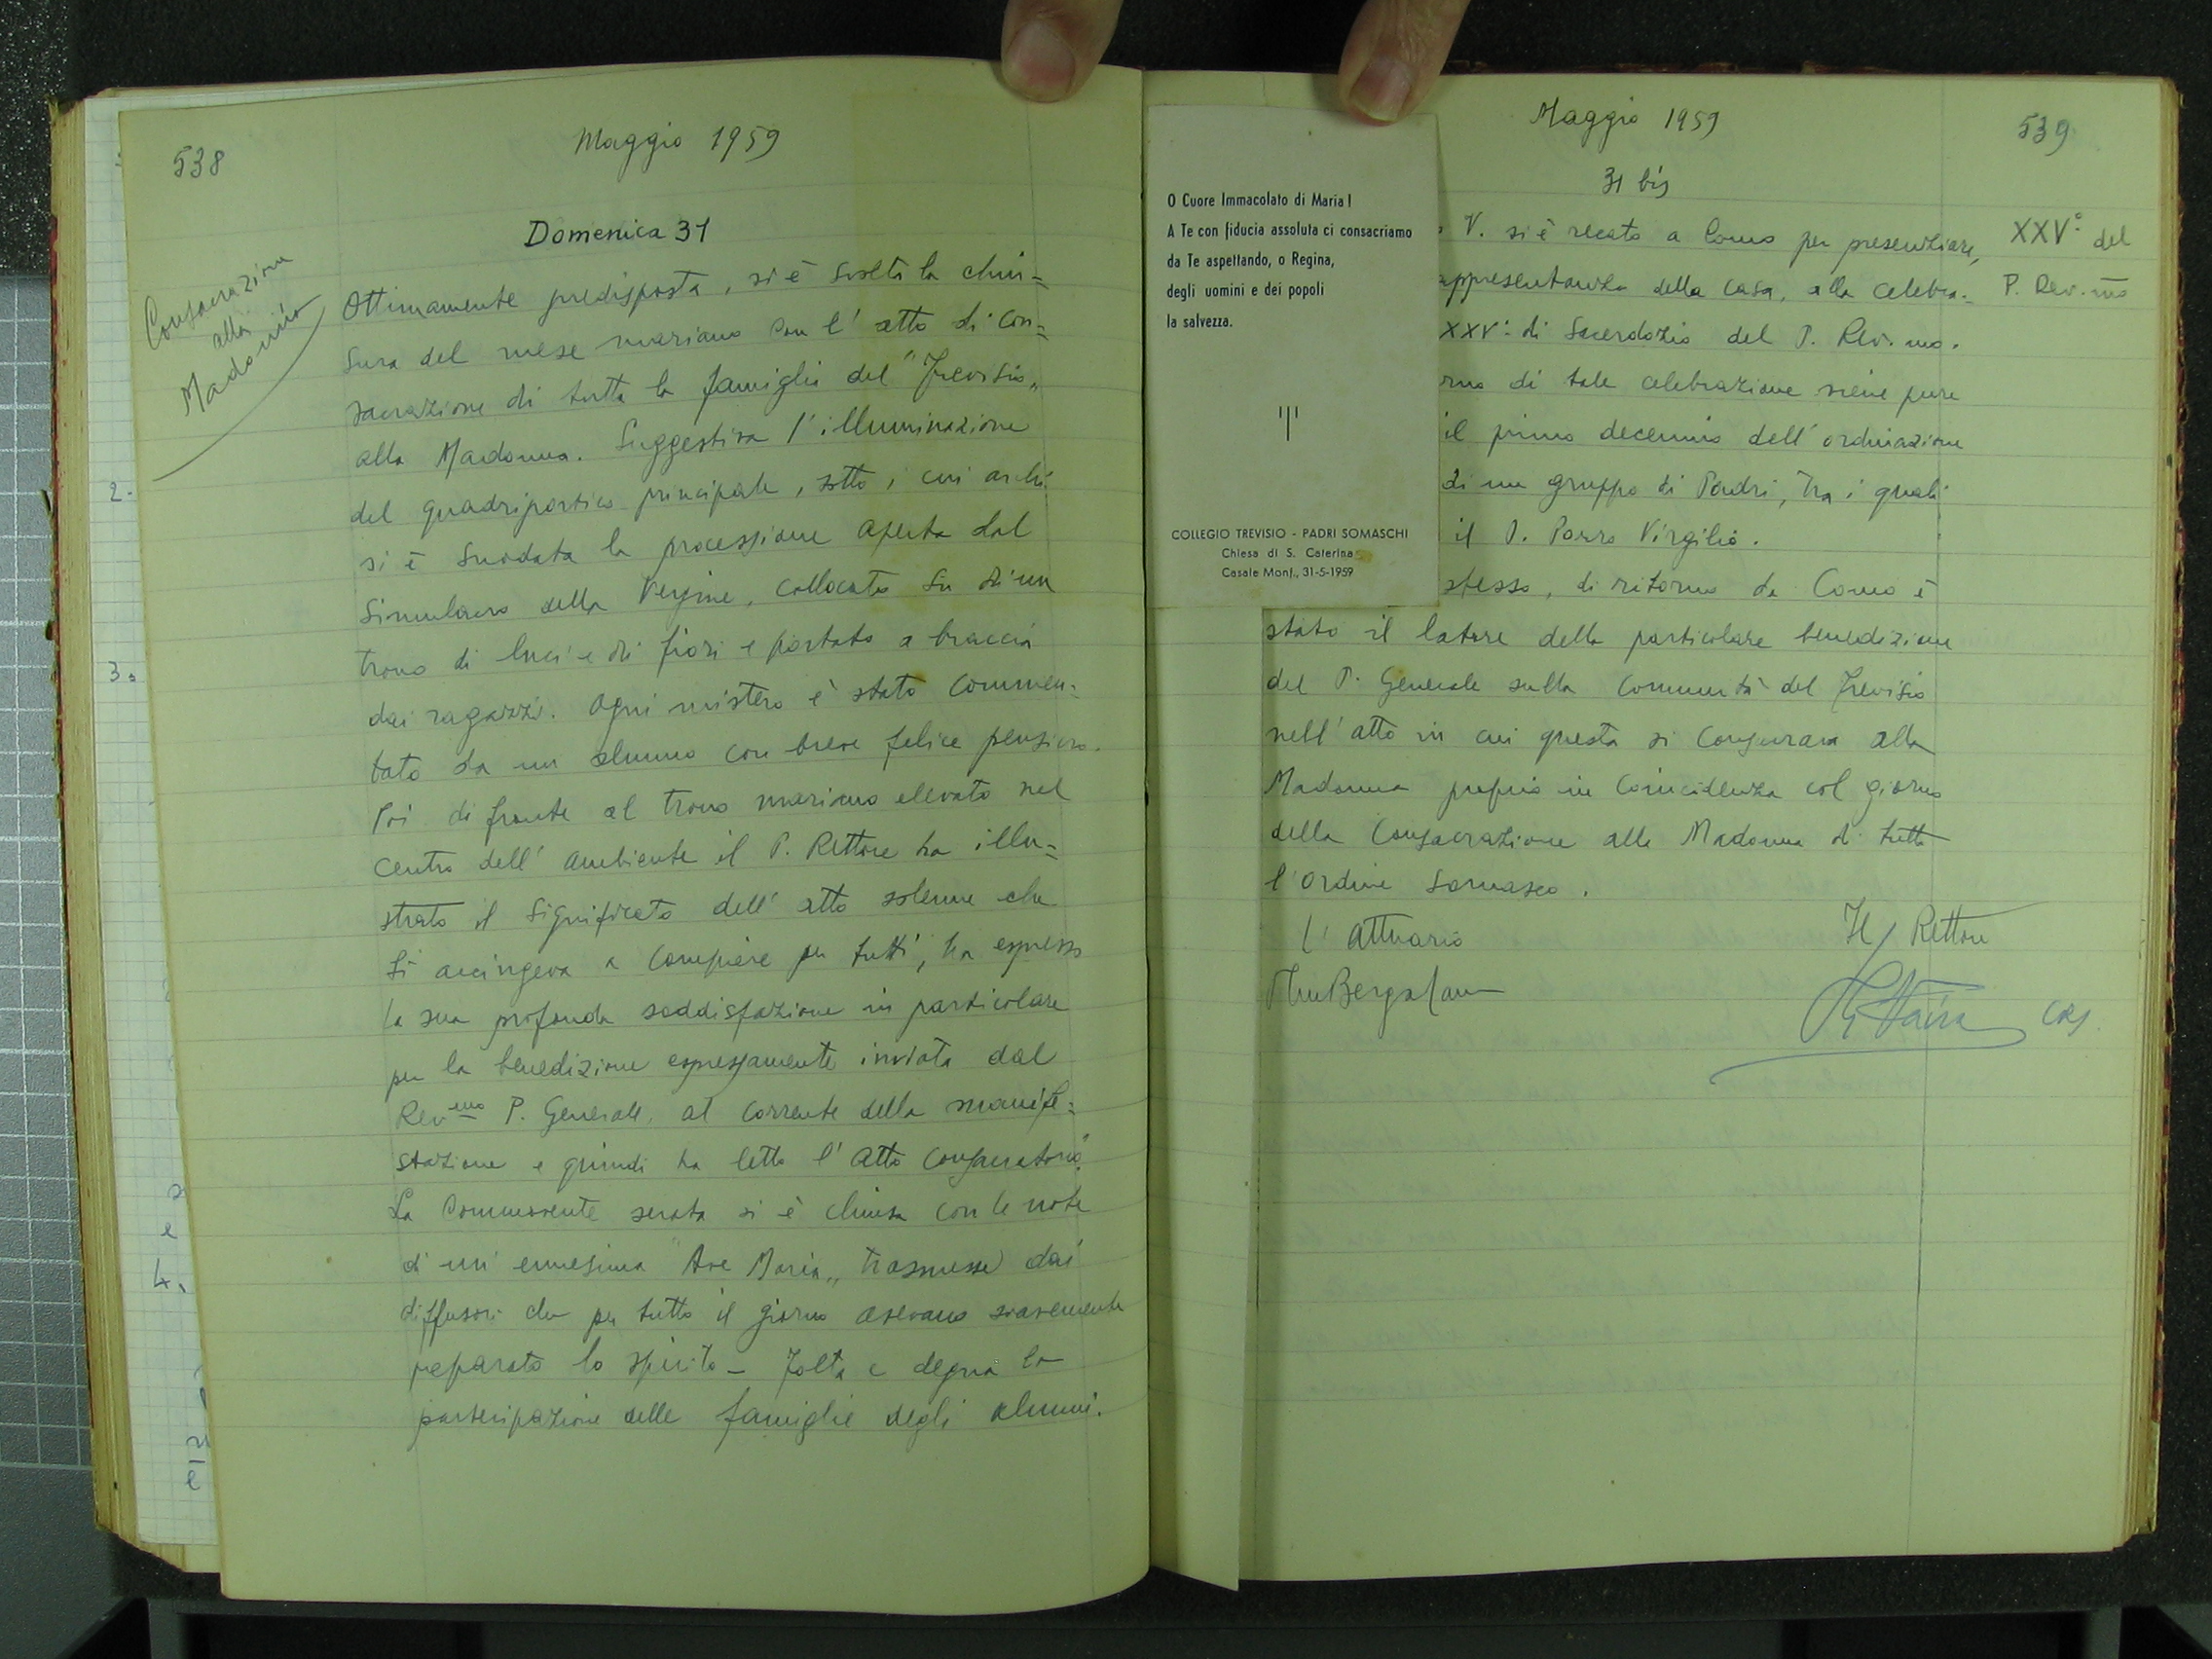 538
Maggio 1959
Domenica 31
Consacrazione
alla
Madonna
Ottimamente predisposta, si è svolta la chiu=
sura del mese mariano con l'atto di con=
sacrazione di tutta la famiglia del "Trevisio"
alla Madonna. Suggestiva l'illuminazione
del quadriportico principale, sotto i cui archi
si è snodata la processione aperta dal
Simulacro della Vergine, collocato su di un
trono di luci e di fiori e portato a braccia
dai ragazzi. Ogni mistero è stato commen=
tato da un alunno con breve felice pensiero.
Poi di fronte al trono mariano elevato nel
centro dell'ambiente il P. Rettore ha illu=
strato il significato dell'atto solenne che
si accingeva a compiere per tutti, ha espresso
la sua profonda soddisfazione in particolare
per la benedizione espressamente inviata dal
Rev.mo P. Generale, al corrente della manife=
stazione e quindi ha letto l'Atto consacratorio.
La commovente serata si è chiusa con le note
di un'ennesima "Ave Maria" trasmesse dai
diffusori che per tutto il giorno avevano soavemente
preparato lo spirito - Folta e degna la
partecipazione delle famiglie degli alunni.
2.
3.
4.
O Cuore Immacolato di Maria!
A Te con fiducia assoluta ci consacriamo
da Te aspettando, o Regina,
degli uomini e dei popoli
la salvezza.
COLLEGIO TREVISIO - PADRI SOMASCHI
Chiesa di S. Caterina
Casale Monf., 31-5-1959
Maggio 1959
539
31 bis
V. si è recato a Como per presenziare,
appresentanza della casa, alla celebra-
XXV° di Sacerdozio del P. Rev.mo.
rno di tale celebrazione viene pure
il primo decennio dell'ordinazione
di un gruppo di Padri, tra i quali
il P. Porro Virgilio.
stesso, di ritorno da Como è
stato il latore della particolare benedizione
del P. Generale sulla Comunità del Trevisio
nell'atto in cui questa si consacrava alla
Madonna proprio in coincidenza col giorno
della Consacrazione alla Madonna di tutto
l'Ordine Somasco.
XXV° del
P. Rev.mo
L'Attuario
Il Rettore
CRS.